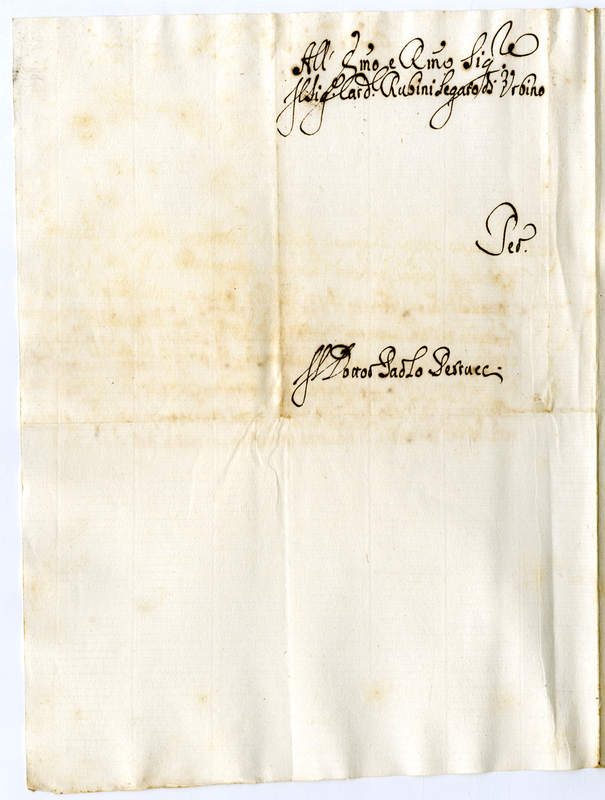 All' Emo e Rmo Sig.re
Il Sig. Card. Rubini Legato di Urbino
Per.
Il Dottor Paolo